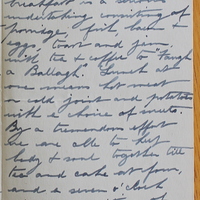 breakfast is a serious
undertaking consisting of
porridge, fish, bacon &
eggs, toast and jam
with tea & coffee to "Faugh
a Ballagh". Lunch at
one means hot meat
or cold joint and potatoes
with a choice of sweets.
By a tremendous effort
we are able to keep
body & soul together till
tea and cake at four,
and a seven o'clock